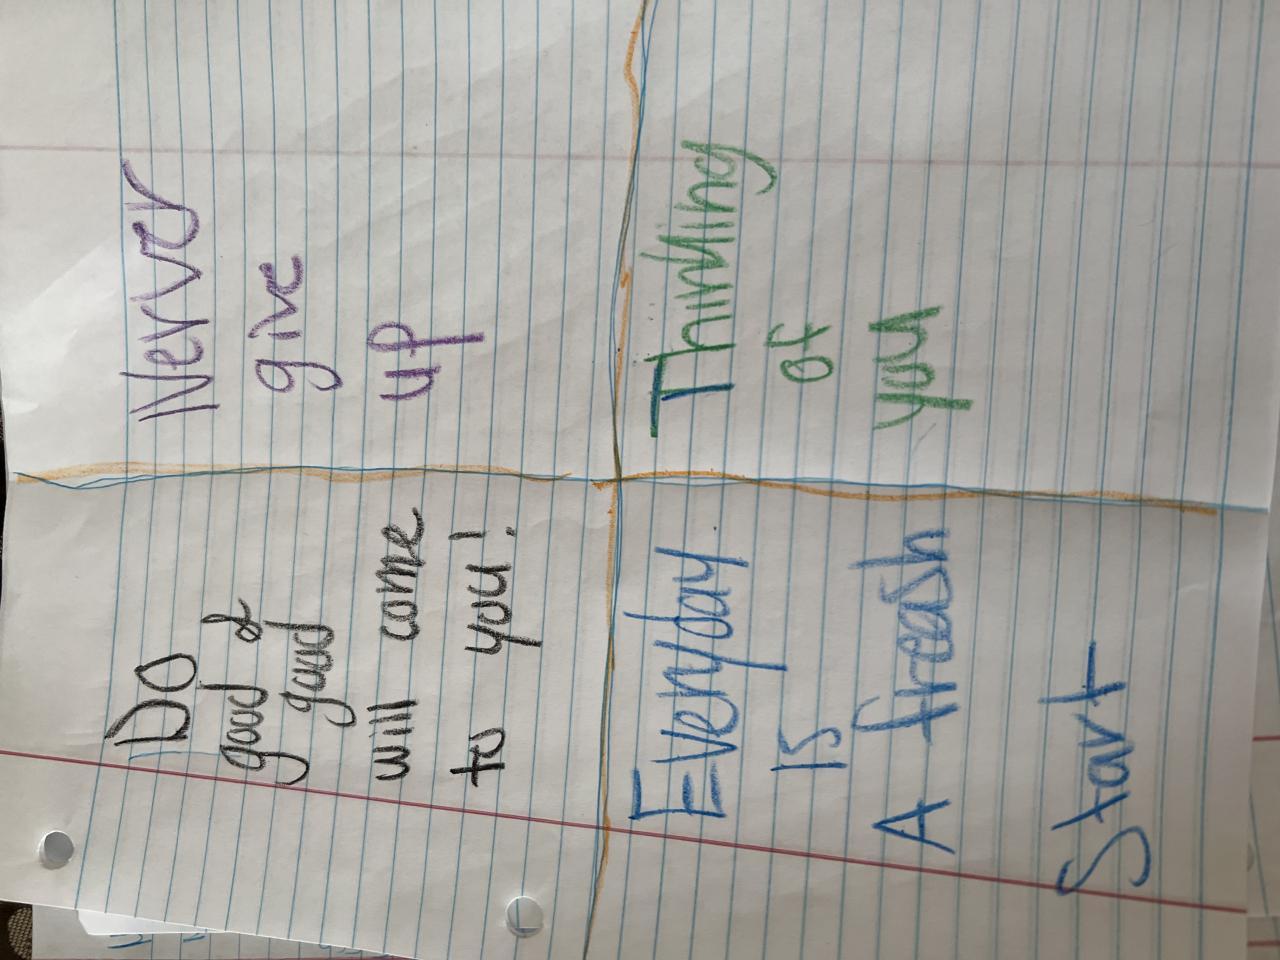 DO
good &
good
will come
to you!
Nerver
give
up
Everyday
IS
A freash
Start
Thinking
of
you